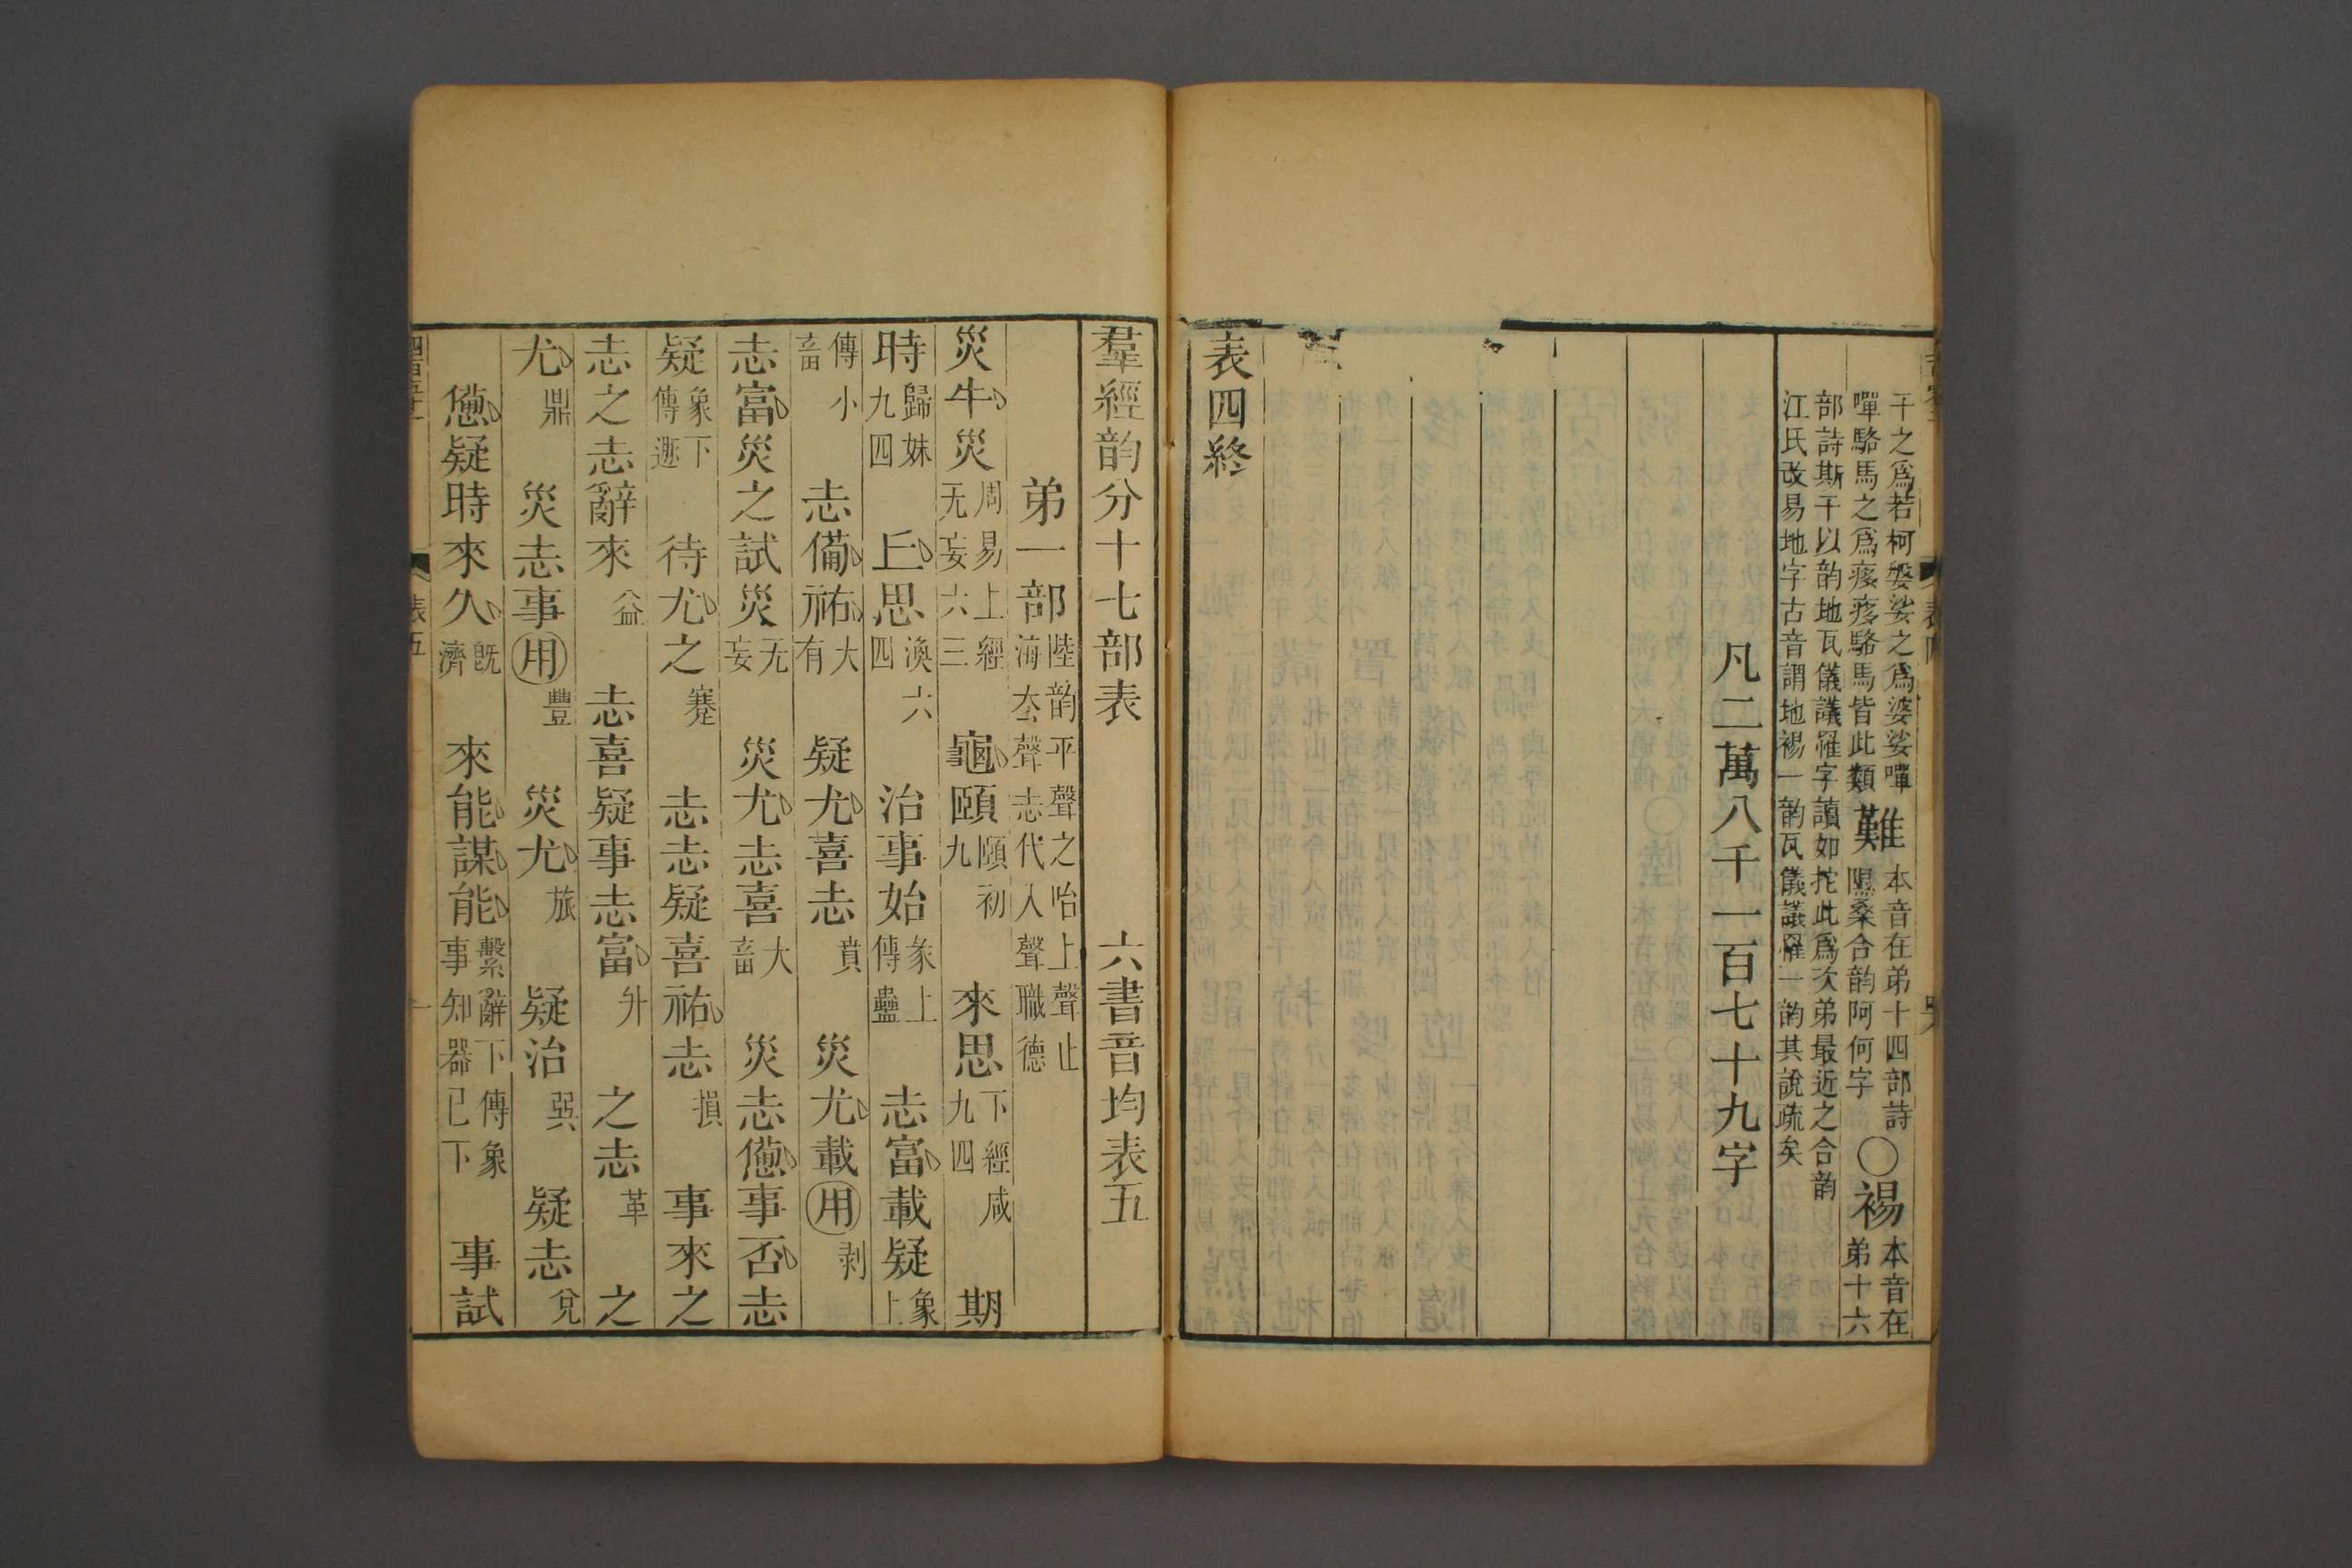 干之爲若柯婆娑之爲婆娑嘽
嘽駱馬之爲痑痑駱馬皆此類難本音在弟十四部詩
隰桑合韵阿何字〇裼本音在
弟十六
部詩斯干以韵地瓦儀議罹字讀如拕此爲次弟最近之合韵
江氏改易地字古音謂地裼一韵瓦儀議罹一韵其說疏矣
凡二萬八千一百七十九字
表四終
羣經韵分十七部表 六書音均表五
弟一部陸韵平聲之咍上聲止
海去聲志代入聲職德
災牛災周易上經
无妄六三 龜頤頤初
九 來思下經咸
九四 期
時歸妹
九四 丘思渙六
四 治事始彖上
傳蠱 志富載疑象
上
傳小
畜 志備祐大
有 疑尤喜志賁 災尤載用剥
志富災之試災无
妄 災尤志喜大
畜 災志憊事否志
疑象下
傳遯 待尤之蹇 志志疑喜祐志損 事來之
志之志辭來益 志喜疑事志富升 之志革 之
尤鼎 災志事用豐 災尤旅 疑治巽 疑志兌
憊疑時來久旣
濟 來能謀能繫辭下傳象
事知器已下 事試
表五 一